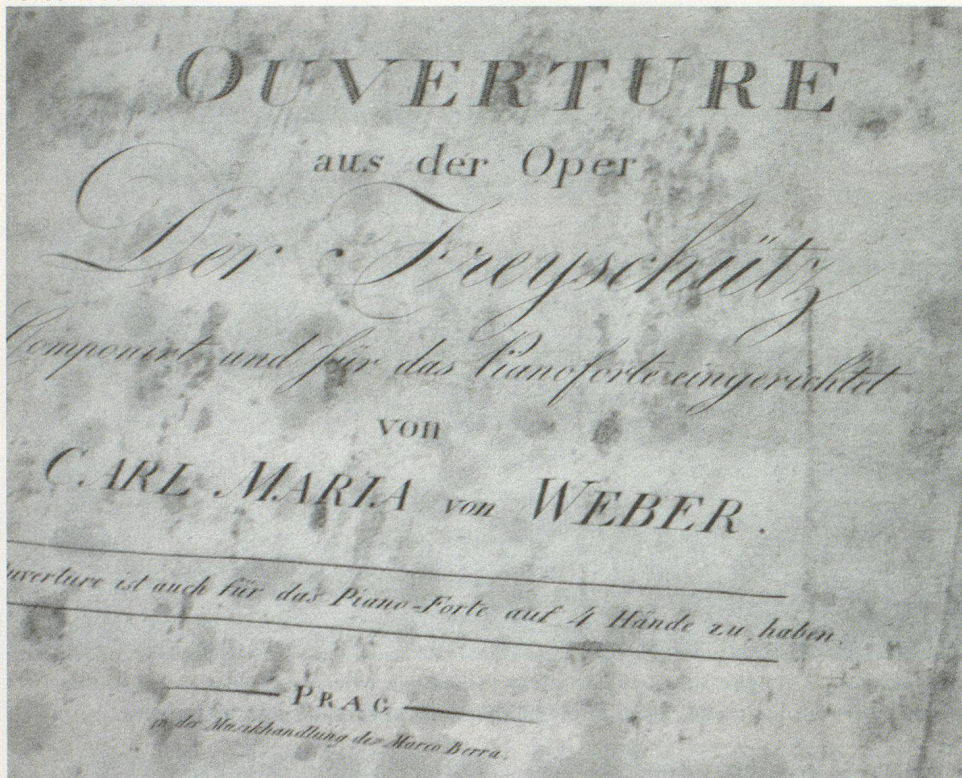 OUVERTURE
aus der Oper
Der Freyschütz
Componirt und für das Pianoforte eingerichtet
von
CARL MARIA von WEBER.
uverture ist auch für das Piano-Forte auf 4 Hände zu haben.
PRAG
in der Musikhandlung des Marco Berra.